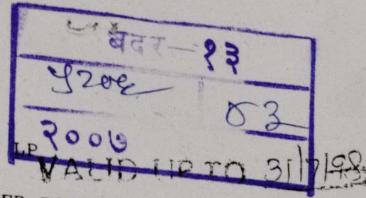 बदर - १३
५२०६ ४३
२००७
LP
VALID UP TO 31/7/98